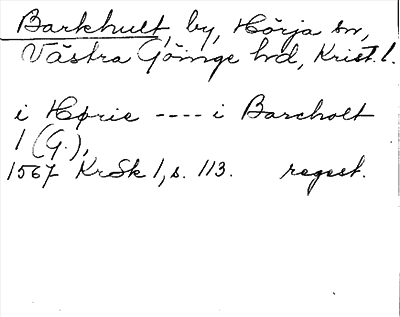 Barkhult, by, Hörja sn,
Västra Göinge hd, Krist. l.
i Hørie ---- i Barcholt
1 (G.),
1567 KrSk 1, s. 113. regest.